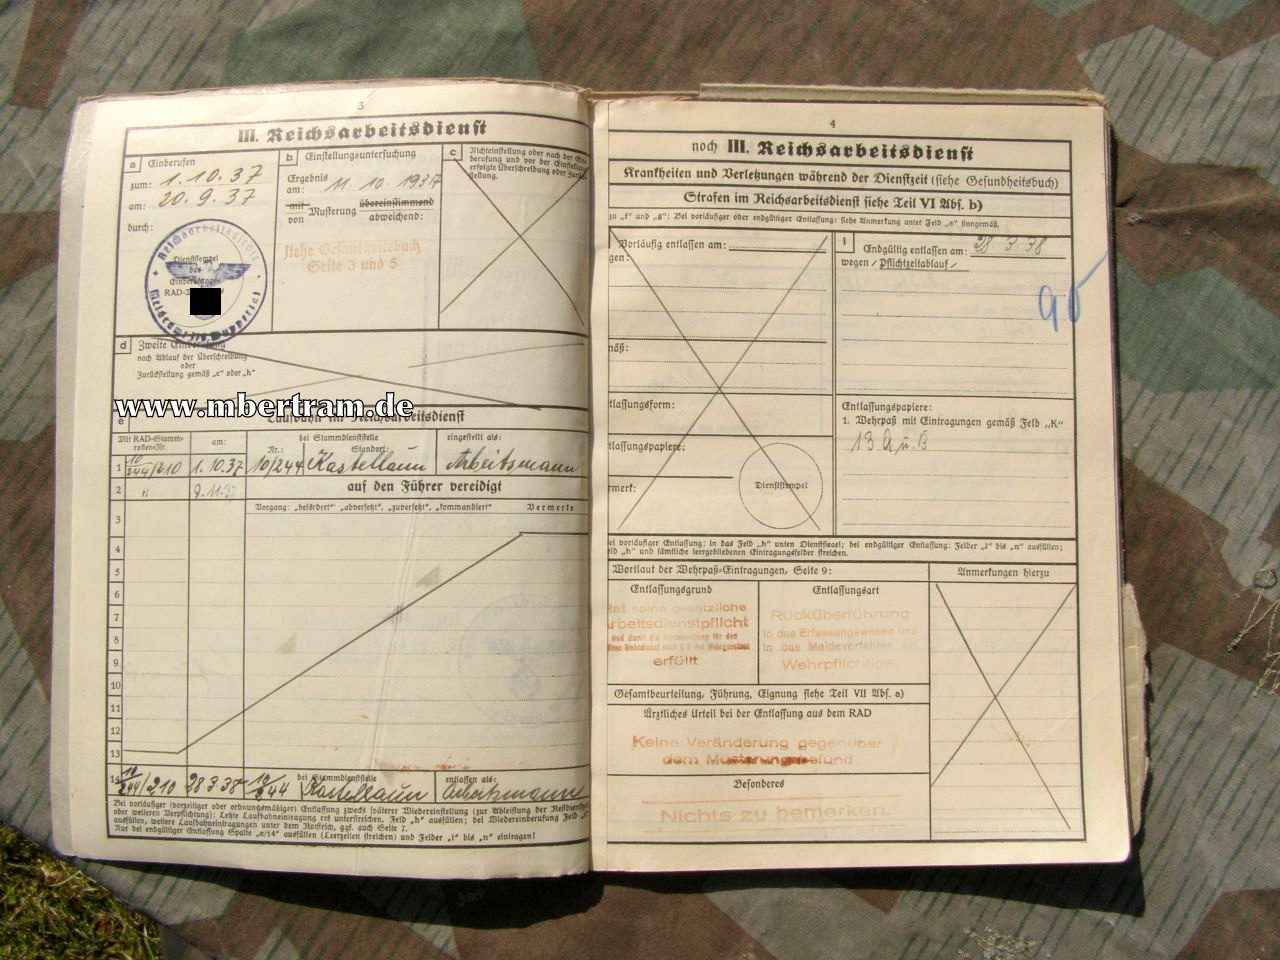 3
III. Reichsarbeitsdienst
a Einberufen
zum: 1.10.37
am: 20.9.37
durch:
Reichsarbeitsdienst
Dienststempel
des
RAD-
b Einstellungsuntersuchung
Ergebnis
am: 11.10.1937
mit übereinstimmend
von Musterung abweichend:
siehe Gesundheitsbuch
Seite 3 und 5
c Nichteinstellung oder nach der Ein-
berufung und vor der Einstellung
erfolgte Überschreibung oder Zurück-
stellung.
d Zweite Einberufung
nach Ablauf der Überschreibung
oder
Zurückstellung gemäß „c" oder „h"
www.mbertram.de
e Laufbahn im Reichsarbeitsdienst
Mit RAD-Stamm-
rollen-Nr. am: bei Stammdienststelle
Nr.: Standort: eingestellt als:
1 10/244/210 1.10.37 10/244 Kastellaun Arbeitsmann
2 " 9.11.37 auf den Führer vereidigt
Vorgang: „befördert", „abversetzt", „zuversetzt", „kommandiert" Vermerke
3
4
5
6
7
8
9
10
11
12
13
bei Stammdienststelle entlassen als:
14 10/244/210 28.3.38 10/244 Kastellaun Arbeitsmann
Bei vorläufiger (vorzeitiger oder ordnungsmäßiger) Entlassung zwecks späterer Wiedereinstellung (zur Ableistung der Restdienstzeit
oder weiteren Verpflichtung): Letzte Laufbahneintragung rot unterstreichen, Feld „h" ausfüllen; bei Wiedereinberufung Feld
ausfüllen, weitere Laufbahneintragungen unter dem Rotstrich, ggf. auch Seite 7.
Nur bei endgültiger Entlassung Spalte „e/14" ausfüllen (Leerzeilen streichen) und Felder „i" bis „n" eintragen!
4
noch III. Reichsarbeitsdienst
Krankheiten und Verletzungen während der Dienstzeit (siehe Gesundheitsbuch)
Strafen im Reichsarbeitsdienst siehe Teil VI Abs. b)
zu „f" und „g": Bei vorläufiger oder endgültiger Entlassung: siehe Anmerkung unter Feld „e" sinngemäß.
Vorläufig entlassen am:
gen:
mäß:
tlassungsform:
tlassungspapiere:
rmerk:
Dienststempel
i Endgültig entlassen am: 28.3.38
wegen / Pflichtzeitablauf /
90
Entlassungspapiere:
1. Wehrpaß mit Eintragungen gemäß Feld „K"
13 A u. B
ei vorläufiger Entlassung: in das Feld „h" unten Dienstsiegel; bei endgültiger Entlassung: Felder „i" bis „n" ausfüllen;
eld „h" und sämtliche leergebliebenen Eintragungsfelder streichen.
Wortlaut der Wehrpaß-Eintragungen, Seite 9:
Anmerkungen hierzu
Entlassungsgrund
Hat seine gesetzliche
rbeitsdienstpflicht
und damit die Voraussetzung für den
erfüllt
Entlassungsart
Rücküberführung
in das Erfassungswesen und
in das Meldeverfahren als
Wehrpflichtiger
Gesamtbeurteilung, Führung, Eignung siehe Teil VII Abs. a)
Ärztliches Urteil bei der Entlassung aus dem RAD
Keine Veränderung gegenüber
dem Musterungsbefund
Besonderes
Nichts zu bemerken.